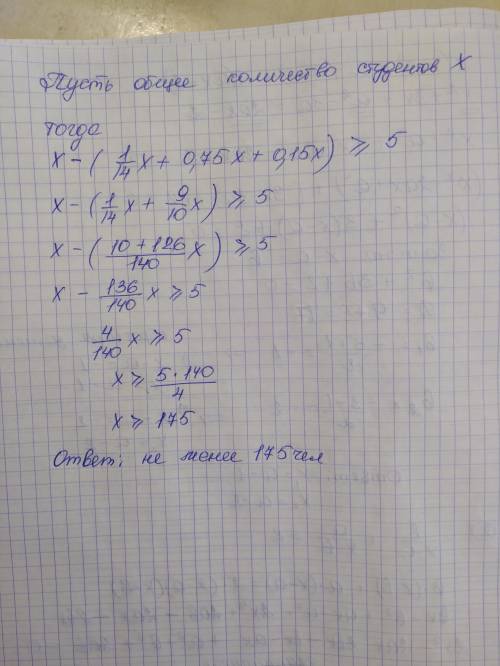 Пусть общее количество студентов X
тогда
X - (1/14 X + 0,75X + 0,15X) ⩾ 5
X - (1/14 X + 9/10 X) ⩾ 5
X - (10 + 126/140 X) ⩾ 5
X - 136/140 X ⩾ 5
4/140 X ⩾ 5
X ⩾ 5 · 140/4
X ⩾ 175
Ответ: не менее 175 чел